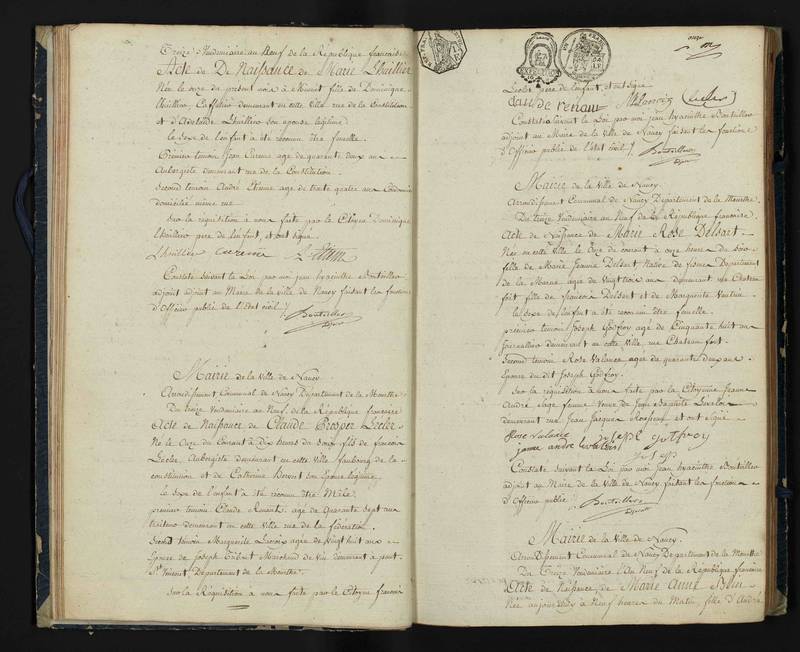 Treize Vendemiaire an Neuf de la République francaise
Acte de D Naissance de Marie Lhuillier
Née le onze du present mois à fille de Dominique
Lhuillier, Caffetier demeurant en cette Ville rue de la Constitution
et d'Adelaide Lhuillier son epouse légitime
le sexe de l'enfant a été reconnu être femelle.
Premier temoin Jean age de quarante deux ans
Aubergiste demeurant rue de la Constitution.
Second temoin André Etienne age de trente quatre ans
domicilié même rue
Sur la réquisition à nous faite par le Citoyen Dominique
Lhuillier pere de l'enfant, et ont signé
Lhuillier
Constaté suivant la Loi par moi jean hyacinthe Boutaillier
adjoint adjoint au Maire de la ville de Nancy faisant les fonctions
d'Officier public de l'état civil /
Boutaillier
Mairie de la Ville de Nancy
Arrondissement Communal de Nancy Département de la Meurthe
Du treize Vendemiaire an Neuf de la République francaise
Acte de Naissance de Claude Prosper Lecler
Né le Onze du Courant à Dix heures du Soir fils de francois
Lecler Aubergiste demeurant en cette Ville faubourg de la
constitution et de Catherine son Epouse légitime
le Sexe de l'enfant a été reconnu être Mâle
premier temoin Claude age de Quarante Sept ans
traiteur demeurant en cette Ville rue de la fédération.
Second témoin Marguerite Lacroix agee de Vingt huit ans
Epouse de Joseph Marchand de Vin demeurant à pont
St Vincent, Département de la Meurthe.
Sur la Réquisition a nous faite par le Citoyen francois
onze
Lecler pere de l'enfant, et ont signé
M Lacroix Lecler
Constaté suivant la Loi par moi jean hyacinthe Boutaillier
adjoint au Maire de la Ville de Nancy faisant les fonctions
d'Officier public de l'état civil /
Boutaillier
Mairie de la Ville de Nancy.
Arrondissement Communal de Nancy Département de la Meurthe.
Du treize Vendemiaire an Neuf de la République francaise.
Acte de Naissance de Marie Rose Delsart
Née en cette Ville le Onze du courant à onze heures du soir
fille de Marie Jeanne Delsart Native de Département
de la Marne age de Vingt trois ans demeurant rue Chateau
fort fille de francois Delsart et de Marguerite
le Sexe de l'enfant a été reconnu être femelle.
premier temoin Joseph Godfroy agé de Cinquante huit ans
Journallier demeurant en cette Ville, rue Chateau fort.
Second temoin Rose Valance agee de quarante deux ans.
Epouse du dit Joseph Godfroy.
Sur la réquisition à nous faite par la Citoyenne Jeanne
André, Sage femme Veuve de Jean Baptiste
demeurant rue Jean Jacques Rousseau et ont signé
Rose Valance
Constaté suivant la Loi par moi jean hyacinthe Boutaillier
adjoint au Maire de la Ville de Nancy, faisant les fonctions
d'Officier public
Boutaillier
Mairie de la Ville de Nancy.
Arrondissement Communal de Nancy Département de la Meurthe
Du Treize Vendemiaire l'An Neuf de la République francaise
Acte de Naissance de Marie Anne Blin
Née aujourdhuy à Neuf heures du Matin fille d'André